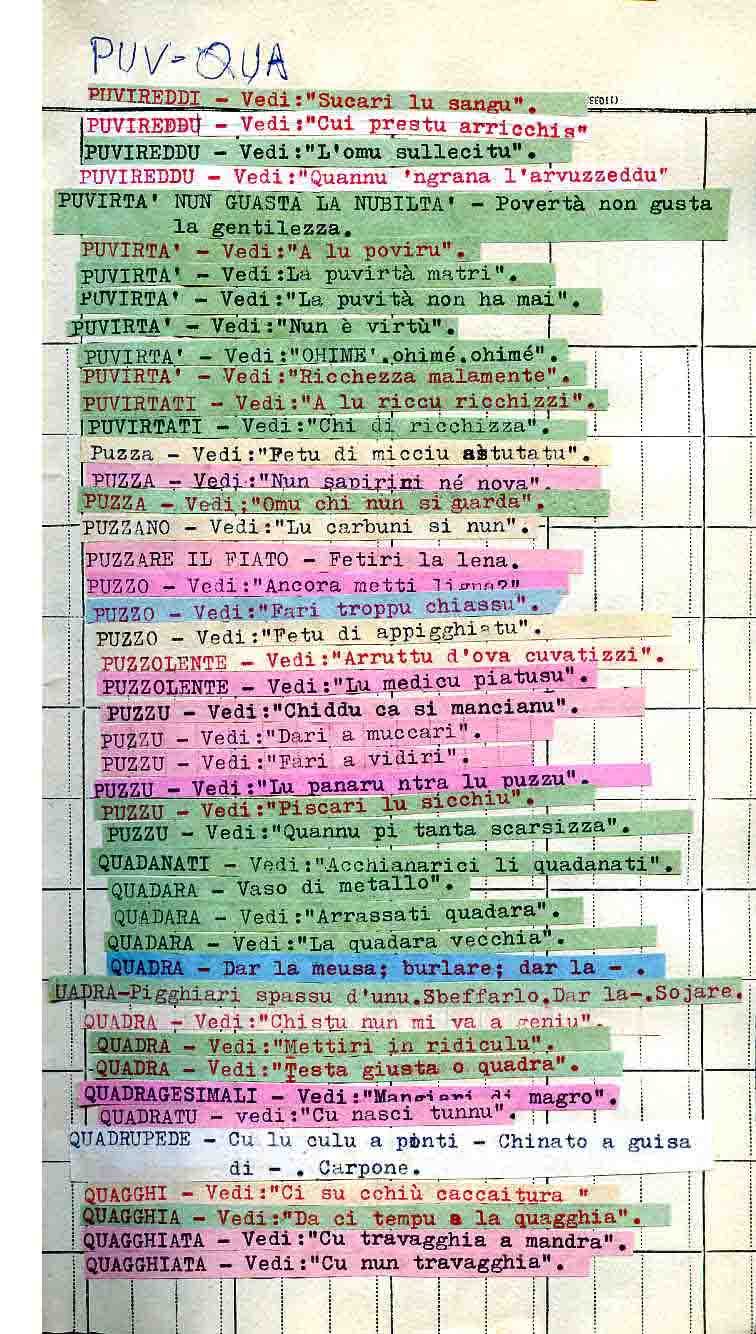 PUV-QUA
PUVIREDDI - Vedi:"Sucari lu sangu".
PUVIREDDU - Vedi:"Cui prestu arricchis"
PUVIREDDU - Vedi:"L'omu sullecitu".
PUVIREDDU - Vedi:"Quannu 'ngrana l'arvuzzeddu"
PUVIRTA' NUN GUASTA LA NUBILTA' - Povertà non gusta
la gentilezza.
PUVIRTA' - Vedi:"A lu poviru".
PUVIRTA' - Vedi:La puvirtà matri".
PUVIRTA' - Vedi:"La puvità non ha mai".
PUVIRTA' - Vedi:"Nun è virtù".
PUVIRTA' - Vedi:"OHIME'.ohimé.ohimé".
PUVIRTA' - Vedi:"Ricchezza malamente".
PUVIRTATI - Vedi:"A lu riccu ricchizzi".
PUVIRTATI - Vedi:"Chi di ricchizza".
Puzza - Vedi:"Fetu di micciu astutatu".
PUZZA - Vedi:"Nun sapirini né nova".
PUZZA - Vedi;"Omu chi nun si guarda".
PUZZANO - Vedi:"Lu carbuni si nun".
PUZZARE IL FIATO - Fetiri la lena.
PUZZO - Vedi:"Ancora metti ligna?"
PUZZO - Vedi:"Fari troppu chiassu".
PUZZO - Vedi:"Fetu di appigghiatu".
PUZZOLENTE - Vedi:"Arruttu d'ova cuvatizzi".
PUZZOLENTE - Vedi:"Lu medicu piatusu".
PUZZU - Vedi:"Chiddu ca si mancianu".
PUZZU - Vedi:"Dari a muccari".
PUZZU - Vedi:"Fari a vidiri".
PUZZU - Vedi:"Lu panaru ntra lu puzzu".
PUZZU - Vedi:"Piscari lu sicchiu".
PUZZU - Vedi:"Quannu pi tanta scarsizza".
QUADANATI - Vedi:"Acchianarici li quadanati".
QUADARA - Vaso di metallo".
QUADARA - Vedi:"Arrassati quadara".
QUADARA - Vedi:"La quadara vecchia".
QUADRA - Dar la meusa; burlare; dar la - .
UADRA-Pigghiari spassu d'unu.Sbeffarlo.Dar la-.Sojare.
QUADRA - Vedi:"Chistu nun mi va a geniu".
QUADRA - Vedi:"Mettiri in ridiculu".
QUADRA - Vedi:"Testa giusta o quadra".
QUADRAGESIMALI - Vedi:"Mangiari di magro".
QUADRATU - vedi:"Cu nasci tunnu".
QUADRUPEDE - Cu lu culu a ponti - Chinato a guisa
di - . Carpone.
QUAGGHI - Vedi:"Ci su cchiù caccaitura "
QUAGGHIA - Vedi:"Da ci tempu a la quagghia".
QUAGGHIATA - Vedi:"Cu travagghia a mandra".
QUAGGHIATA - Vedi:"Cu nun travagghia".